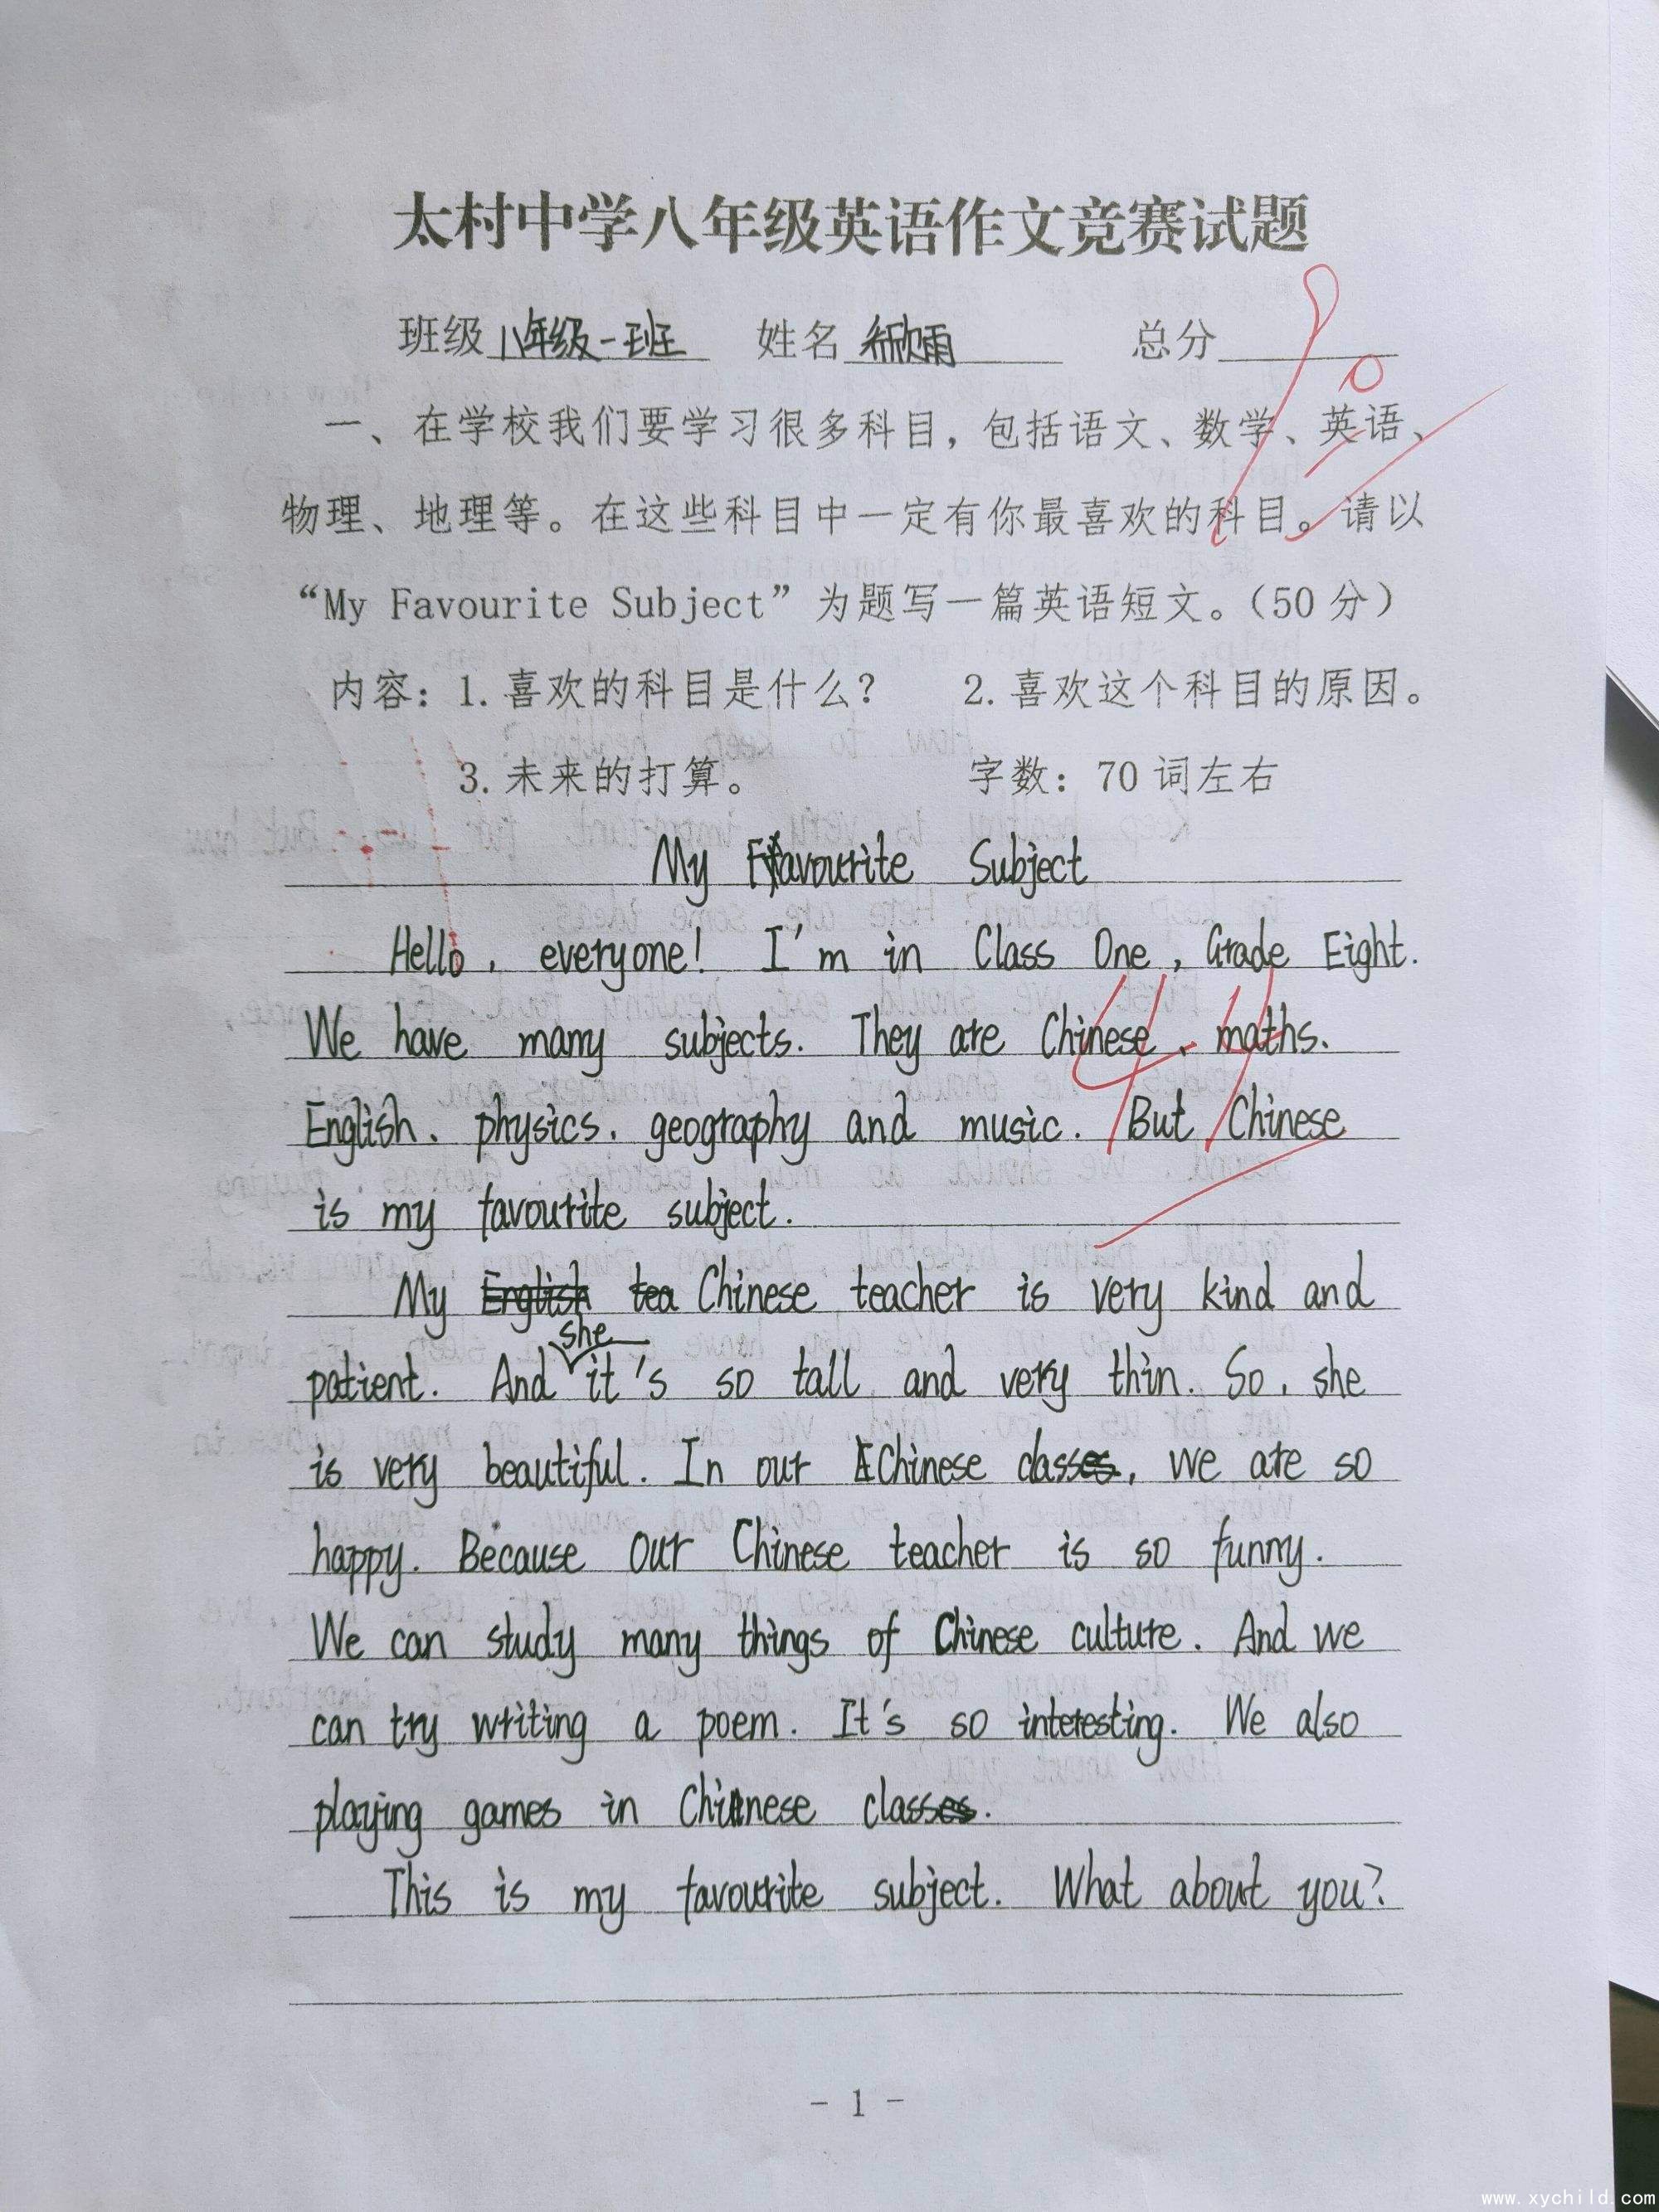 太村中学八年级英语作文竞赛试题
班级 八年级一班 姓名 欣雨 总分
90
一、在学校我们要学习很多科目，包括语文、数学、英语、
物理、地理等。在这些科目中一定有你最喜欢的科目。请以
“My Favourite Subject”为题写一篇英语短文。（50 分）
内容：1. 喜欢的科目是什么？ 2. 喜欢这个科目的原因。
3. 未来的打算。 字数：70 词左右
My Favourite Subject
Hello, everyone! I'm in Class One, Grade Eight.
We have many subjects. They are Chinese, maths.
English, physics, geography and music. But Chinese
is my favourite subject.
44
My English tea Chinese teacher is very kind and
she
patient. And it's so tall and very thin. So, she
is very beautiful. In our Chinese classes, we are so
happy. Because our Chinese teacher is so funny.
We can study many things of Chinese culture. And we
can try writing a poem. It's so interesting. We also
playing games in Chinese classes.
This is my favourite subject. What about you?
- 1 -
www.xychild.com